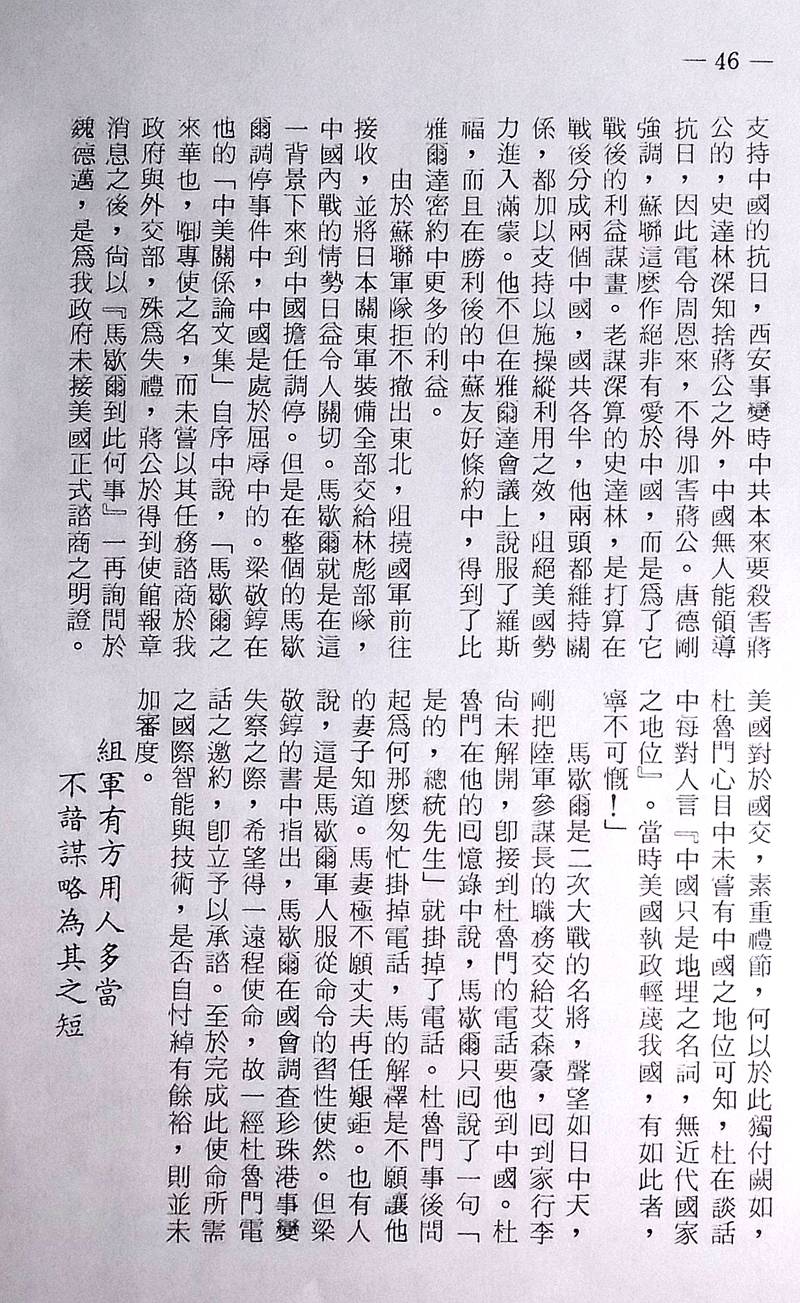 — 46 —
支持中國的抗日，西安事變時中共本來要殺害蔣
公的，史達林深知捨蔣公之外，中國無人能領導
抗日，因此電令周恩來，不得加害蔣公。唐德剛
強調，蘇聯這麼作絕非有愛於中國，而是爲了它
戰後的利益謀畫。老謀深算的史達林，是打算在
戰後分成兩個中國，國共各半，他兩頭都維持關
係，都加以支持以施操縱利用之效，阻絕美國勢
力進入滿蒙。他不但在雅爾達會議上說服了羅斯
福，而且在勝利後的中蘇友好條約中，得到了比
雅爾達密約中更多的利益。
由於蘇聯軍隊拒不撤出東北，阻撓國軍前往
接收，並將日本關東軍裝備全部交給林彪部隊，
中國內戰的情勢日益令人關切。馬歇爾就是在這
一背景下來到中國擔任調停。但是在整個的馬歇
爾調停事件中，中國是處於屈辱中的。梁敬錞在
他的「中美關係論文集」自序中說，「馬歇爾之
來華也，啣專使之名，而未嘗以其任務諮商於我
政府與外交部，殊爲失禮，蔣公於得到使館報章
消息之後，尙以『馬歇爾到此何事』一再詢問於
魏德邁，是爲我政府未接美國正式諮商之明證。
美國對於國交，素重禮節，何以於此獨付闕如，
杜魯門心目中未嘗有中國之地位可知，杜在談話
中每對人言『中國只是地理之名詞，無近代國家
之地位』。當時美國執政輕蔑我國，有如此者，
寧不可慨！」
馬歇爾是二次大戰的名將，聲望如日中天，
剛把陸軍參謀長的職務交給艾森豪，回到家行李
尙未解開，卽接到杜魯門的電話要他到中國。杜
魯門在他的回憶錄中說，馬歇爾只回說了一句「
是的，總統先生」就掛掉了電話。杜魯門事後問
起爲何那麼匆忙掛掉電話，馬的解釋是不願讓他
的妻子知道。馬妻極不願丈夫再任艱鉅。也有人
說，這是馬歇爾軍人服從命令的習性使然。但梁
敬錞的書中指出，馬歇爾在國會調查珍珠港事變
失察之際，希望得一遠程使命，故一經杜魯門電
話之邀約，卽立予以承諾。至於完成此使命所需
之國際智能與技術，是否自忖綽有餘裕，則並未
加審度。
組軍有方用人多當
不諳謀略為其之短